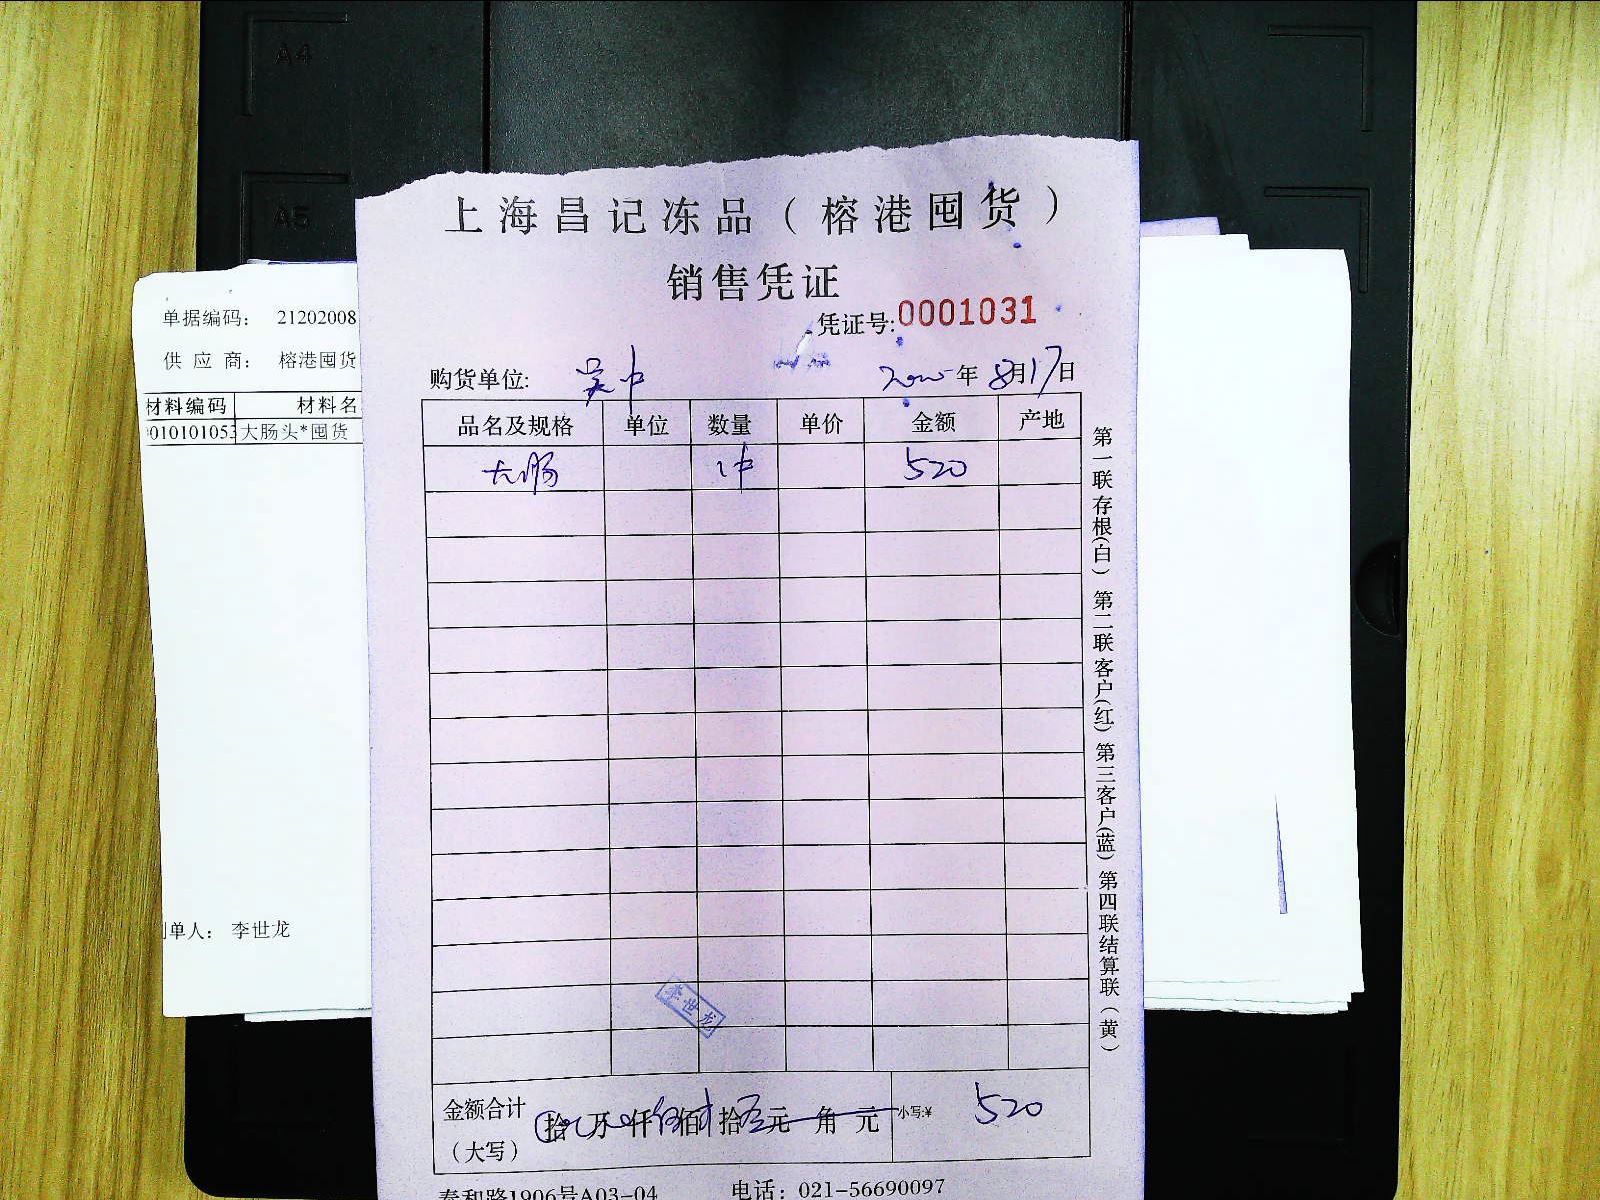 A4
A5
上海昌记冻品（榕港囤货）
销售凭证
凭证号:0001031
购货单位: 吴中 年8月17日
品名及规格 单位 数量 单价 金额 产地
大肠 1件 520
金额合计（大写） 拾 万 仟 佰 拾 元 角 元 小写:¥ 520
泰和路1906号A03-04 电话：021-56690097
第一联存根(白) 第二联客户(红) 第三客户(蓝) 第四联结算联(黄)
李世龙
单据编码： 21202008
供应商： 榕港囤货
材料编码 材料名
010101053 大肠头*囤货
单人： 李世龙